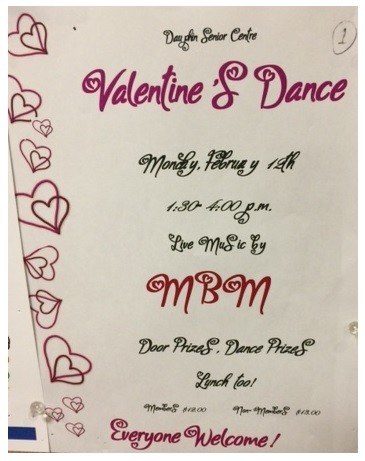 Dauphin Senior Centre
1
Valentine's Dance
Monday, February 12th
1:30- 4:00 p.m.
Live Music by
MBM
Door Prizes, Dance Prizes
Lunch too!
Members $12.00 Non-Members $13.00
Everyone Welcome!